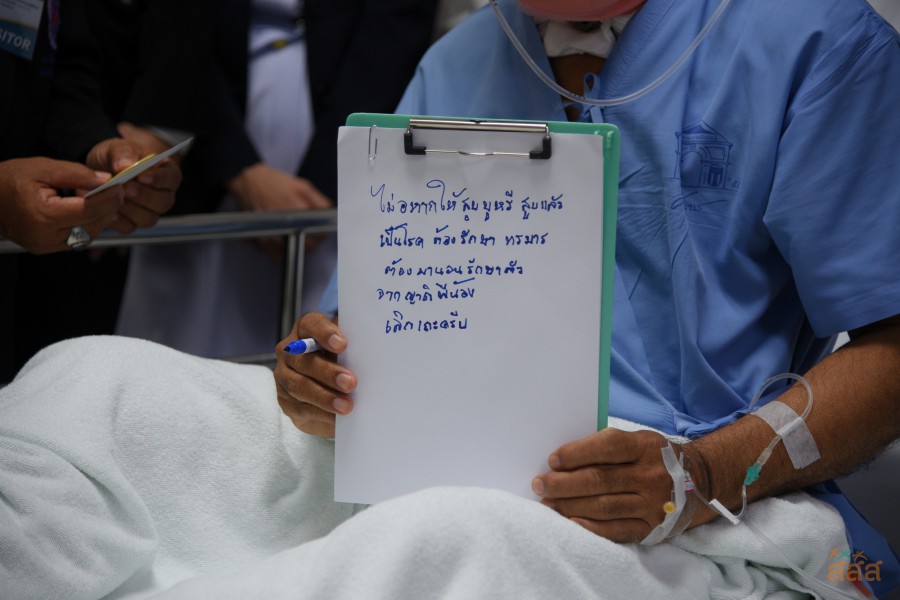 SITOR
ไม่อยากให้ สูบบุหรี่ สูบแล้ว
เป็นโรค ต้องรักษา ทรมาร
ต้องมานอนรักษาตัว
จากญาติพี่น้อง
เลิกเถอะครับ
สสส